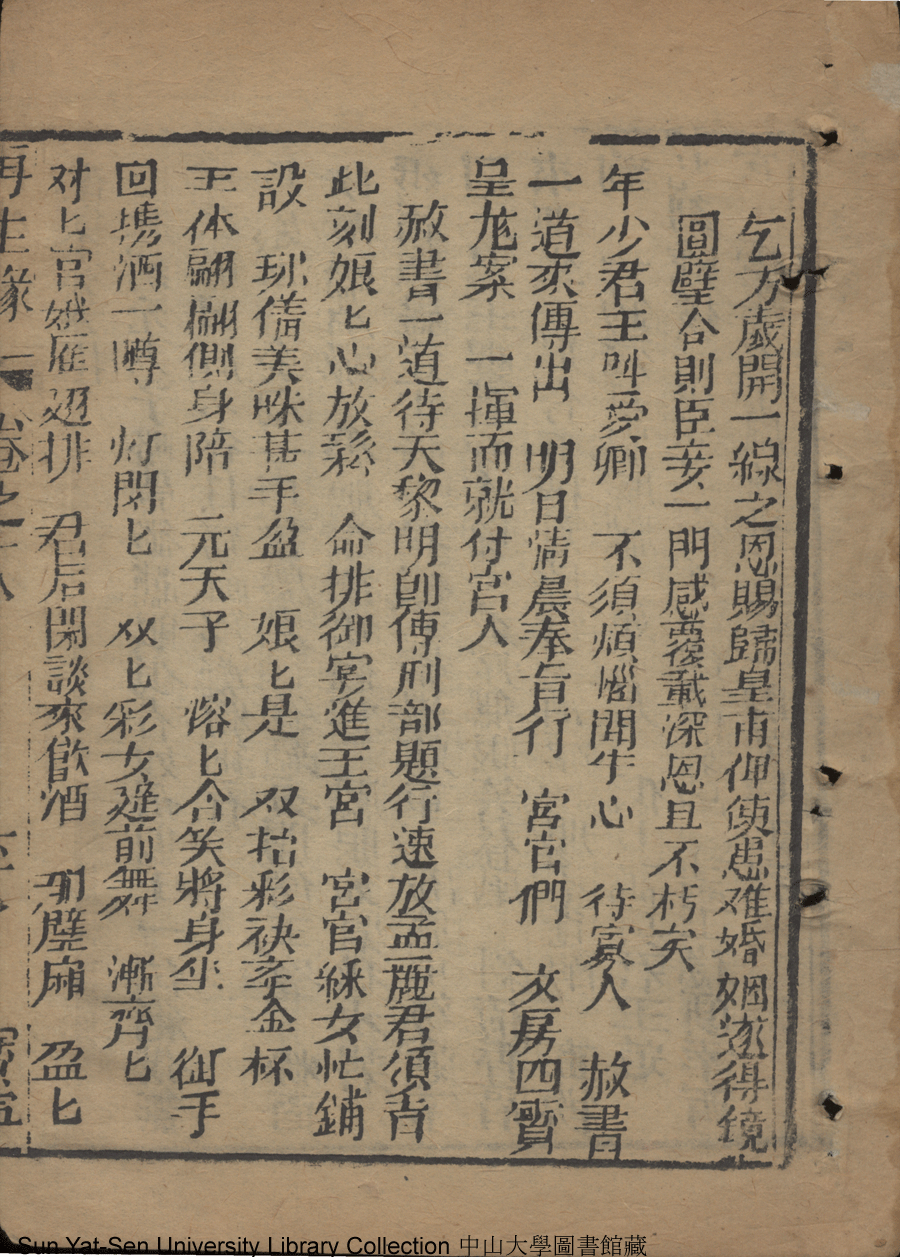 乞万歲開一線之恩賜歸皇甫俾使患难婚姻遂得鏡
圓璧合則臣妾一門感覆載深恩且不朽矣
年少君王叫爱卿　不須煩惱開牛心　待寡人　赦書
一道來傳出　明日情晨奉旨行　宮官們　文房四寳
呈龙案　一揮而就付宮人
赦書一道待天黎明卽傳刑部題行速放孟麗君須香
此刻娘匕心放鬆　命排御宴進王宮　宮官綵女忙鋪
設　珎偹美味甚丰盈　娘匕是　双抬彩袂奉金杯
玉体翩翩側身陪　元天子　熔匕含笑將身坐　御手
回携酒一罇　灯閃匕　双匕彩女進前舞　漸齊匕
对匕官娥雁翅排　君后閑談來飲酒　那壁廂　盈匕
再生緣　卷之十八
Sun Yat-Sen University Library Collection 中山大學圖書館藏